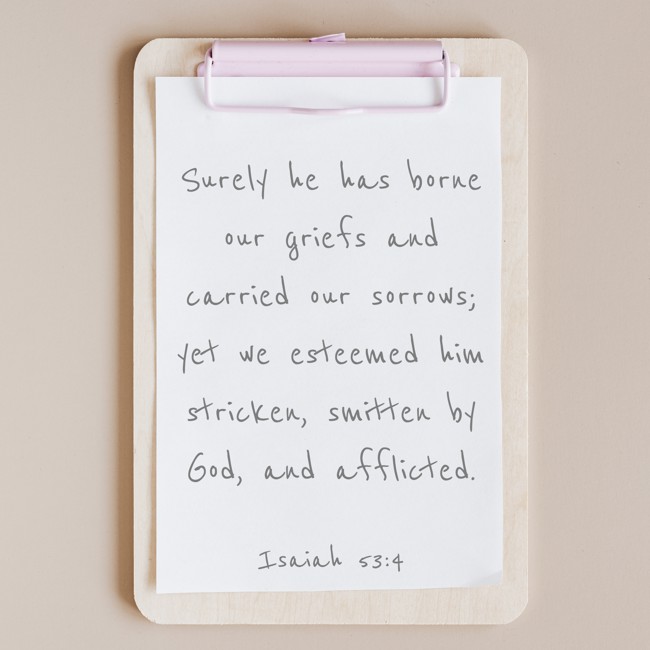 Surely he has borne
our griefs and
carried our sorrows;
yet we esteemed him
stricken, smitten by
God, and afflicted.
Isaiah 53:4